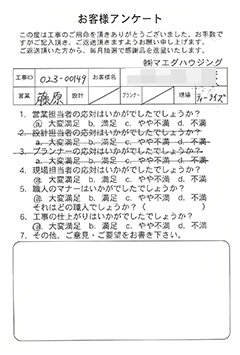 お客様アンケート
この度は工事のご用命を頂きありがとうございました。お手数で
すがご記入頂き、ご返送頂きますようお願い申し上げます。
ご返送頂いた方から、毎月抽選で感謝品を進呈いたします。
㈱マエダハウジング
工事ID 023-00149 お客様名
営業 藤原 設計 プランナー 現場
1. 営業担当者の応対はいかがでしたでしょうか?
a. 大変満足 b. 満足 c. やや不満 d. 不満
2. 設計担当者の応対はいかがでしたでしょうか?
a. 大変満足 b. 満足 c. やや不満 d. 不満
3. プランナーの応対はいかがでしたでしょうか?
a. 大変満足 b. 満足 c. やや不満 d. 不満
4. 現場担当者の応対はいかがでしたでしょうか?
a. 大変満足 b. 満足 c. やや不満 d. 不満
5. 職人のマナーはいかがでしたでしょうか?
a. 大変満足 b. 満足 c. やや不満 d. 不満
それはどの職人でしょうか?( )
6. 工事の仕上がりはいかがでしたでしょうか?
a. 大変満足 b. 満足 c. やや不満 d. 不満
7. その他、ご意見・ご要望をお書き下さい。